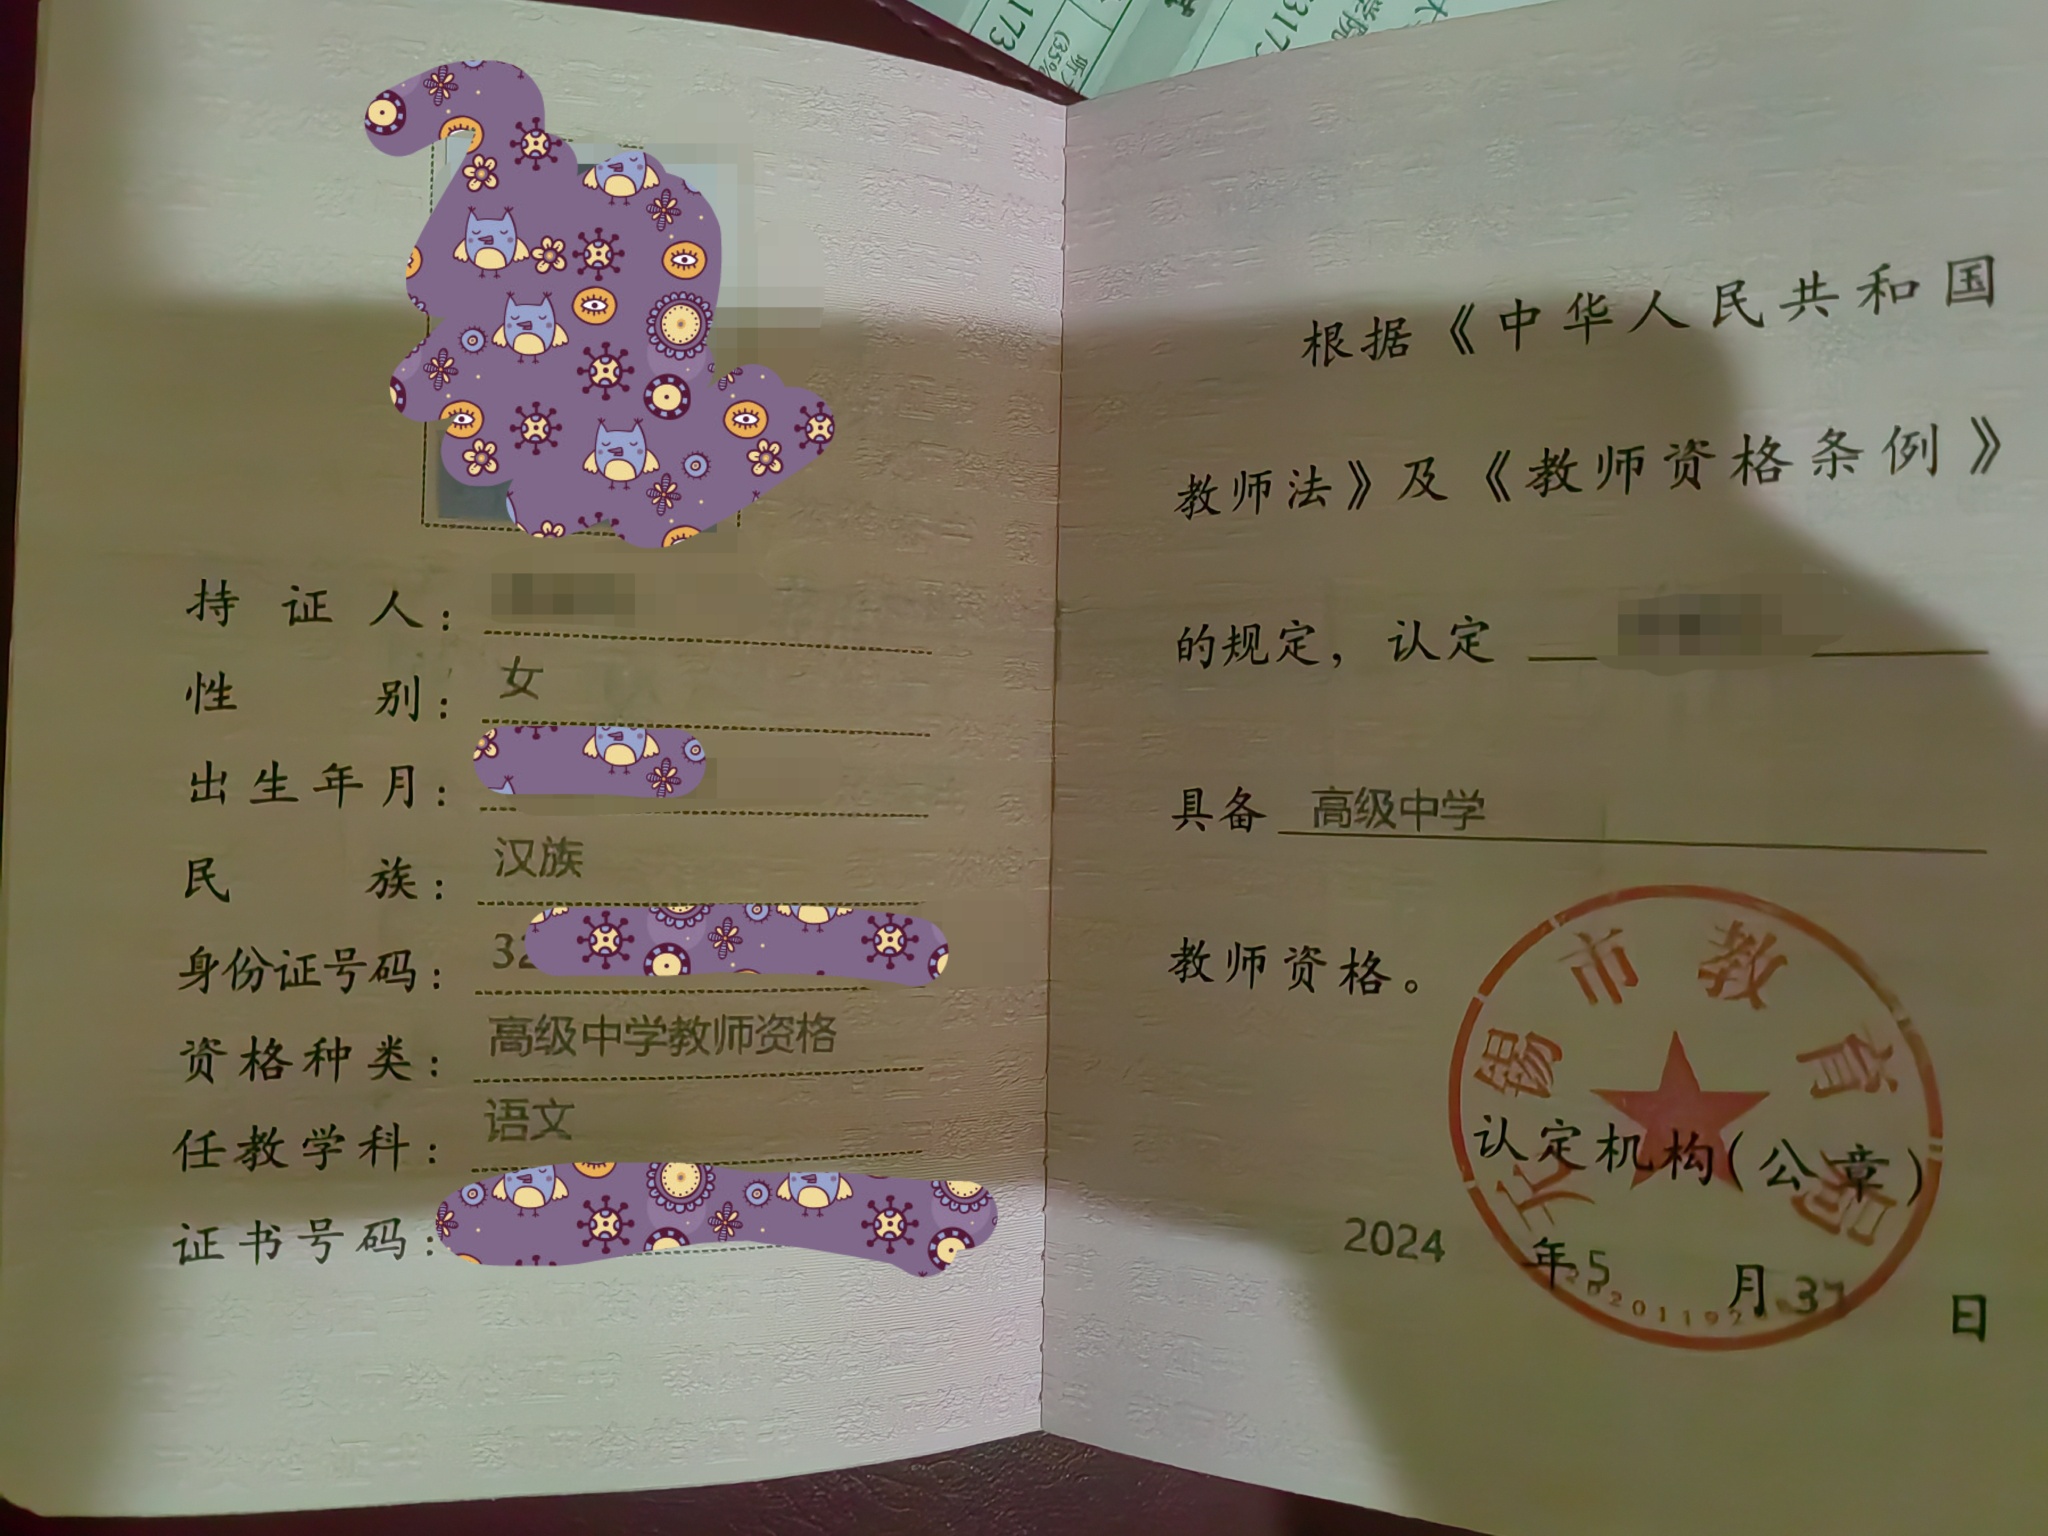 持证人：
性别：女
出生年月：
民族：汉族
身份证号码：32
资格种类：高级中学教师资格
任教学科：语文
证书号码：
根据《中华人民共和国
教师法》及《教师资格条例》
的规定，认定
具备 高级中学
教师资格。
无锡市教育局
认定机构（公章）
2024年5月31日
173
(35%)